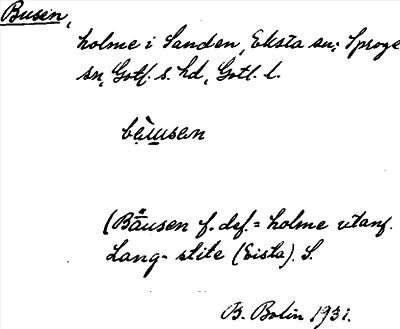 Busen,
holme i Sanden, Eksta sn; Sproge
sn, Gotl. s. hd, Gotl. l.
bäusen
(Bäusen f. def. = holme utanf.
Lang-stite (Eista). S.
B. Bolin 1931.